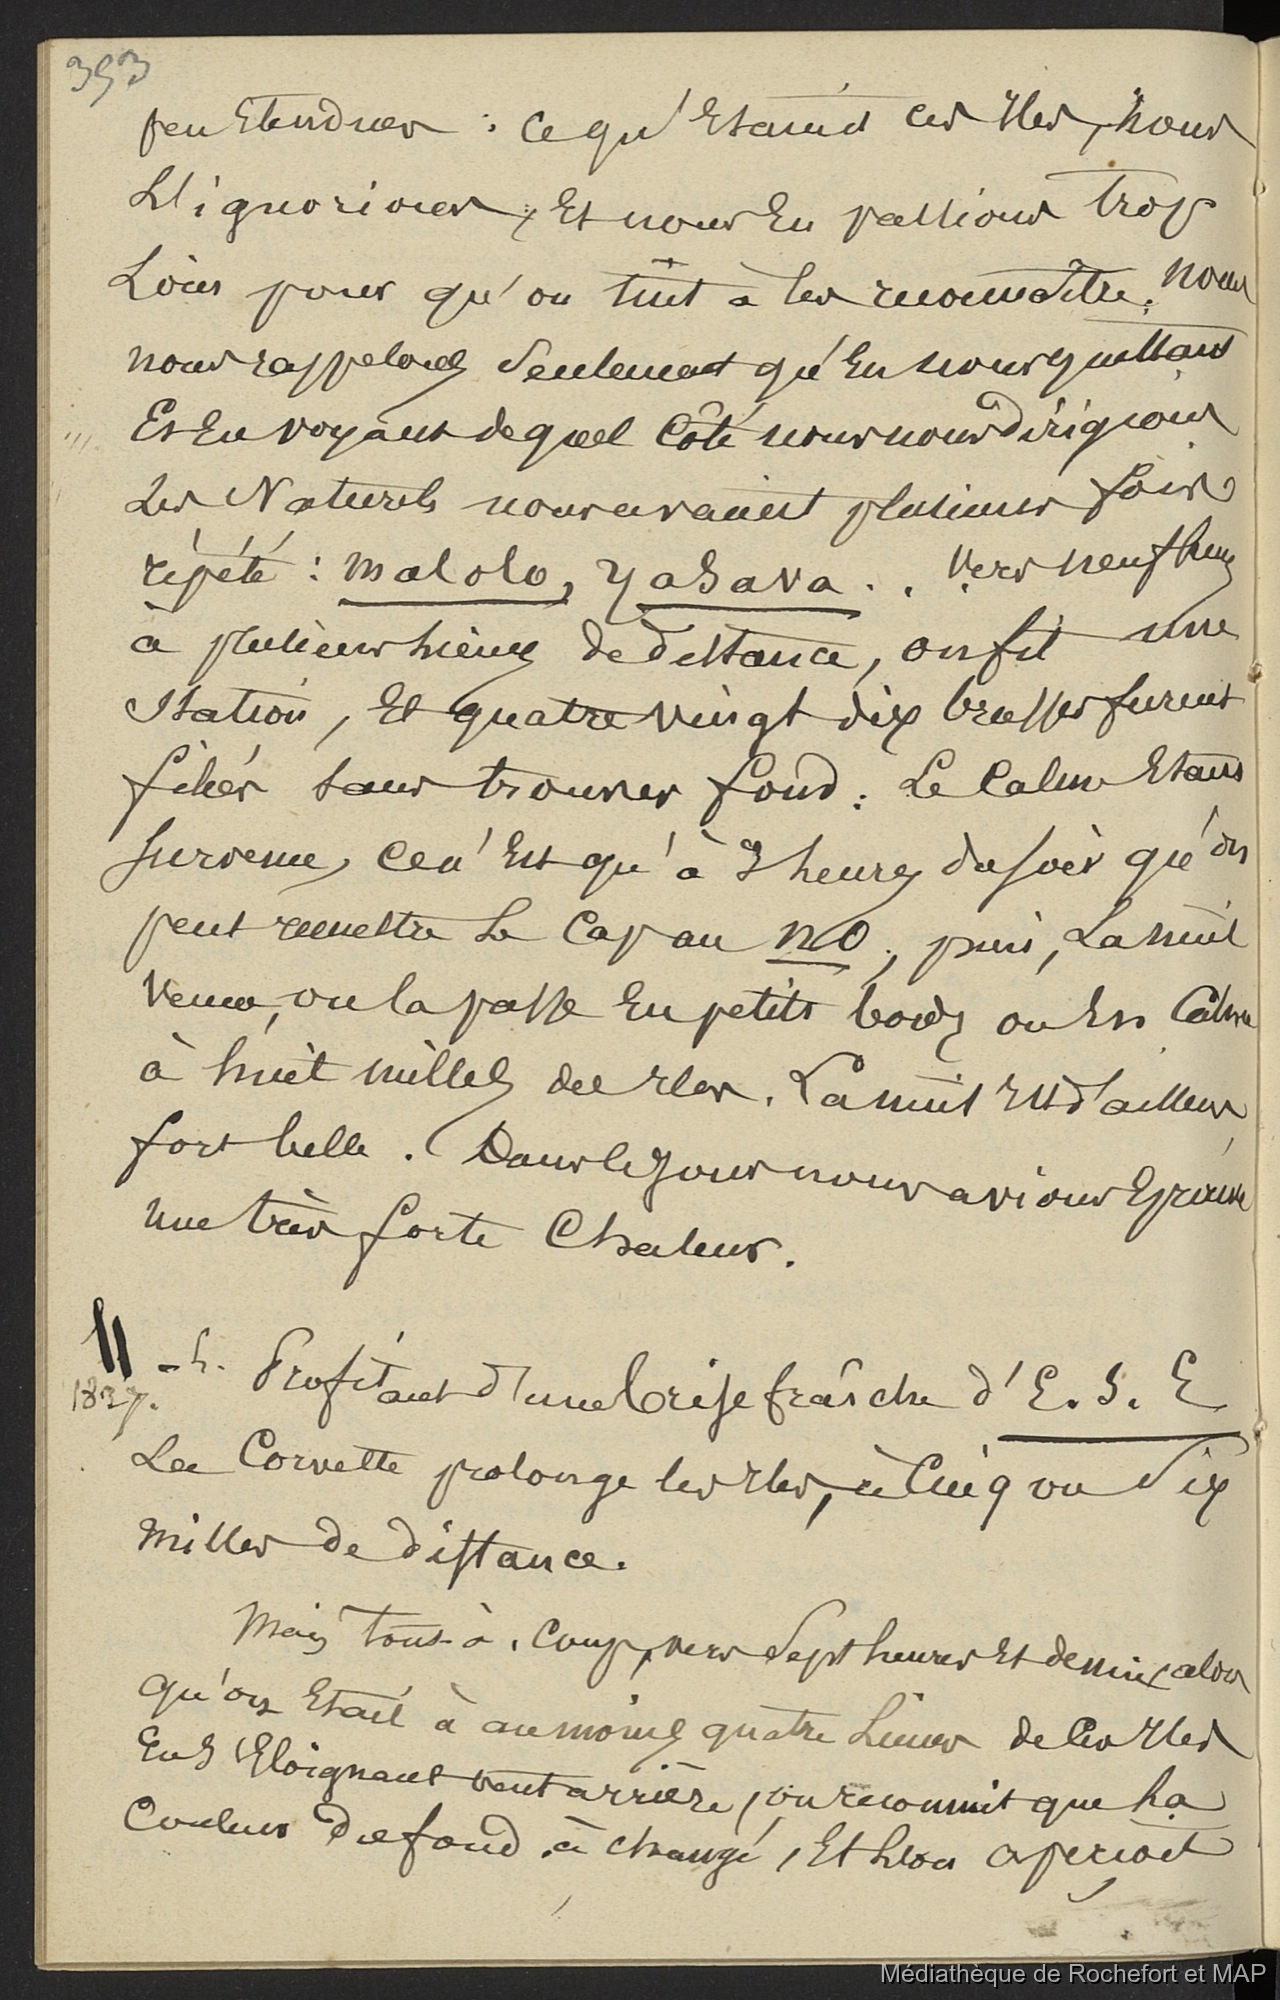 393
peu Etendues : ce qu'Etaient ces Iles, nous
L'ignorions, Et nous En passions trop
Loin pour qu'on tint à les reconnaître. Nous
nous rappelons Seulement qu'En nous quittant
Et En voyant de quel Côté nous nous dirigions
Les Naturels nous avaient plusieurs fois
répété : Malolo, Yasava . . Vers neuf heures
à plusieurs Lieues de distance, on fit une
Station, Et quatre vingt dix brasses furent
filées sans trouver fond. Le Calme Etant
survenu, ce n'Est qu'à 3 heures du soir qu'on
peut remettre Le Cap au NO, puis, La nuit
venue, on la passe En petits bords ou En Calme
à huit milles des Iles. La nuit Est d'ailleurs
fort belle. Dans le Jour nous avions Eprouvé
une très forte Chaleur.
11 -h. Profitant d'une brise fraîche d'E. S. E
1827.
La Corvette prolonge les Iles, à Cinq ou Six
milles de distance.
Mais tout-à-Coup, vers Sept heures Et demie, alors
qu'on Etait à au moins quatre Lieues de Ces Iles
En S'Eloignant vent arrière, on reconnut que La
Couleur du fond a changé, Et L'on aperçoit
Médiathèque de Rochefort et MAP